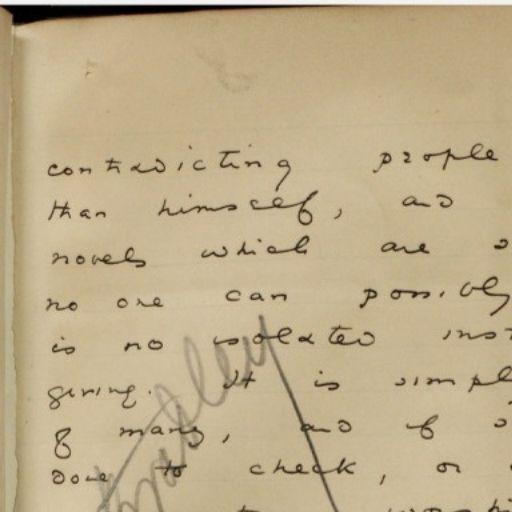 contradicting people
than himself, and
novels which are
no one can possibly
is no isolated inst
giving. It is simpl
of many, and if
done to check, or